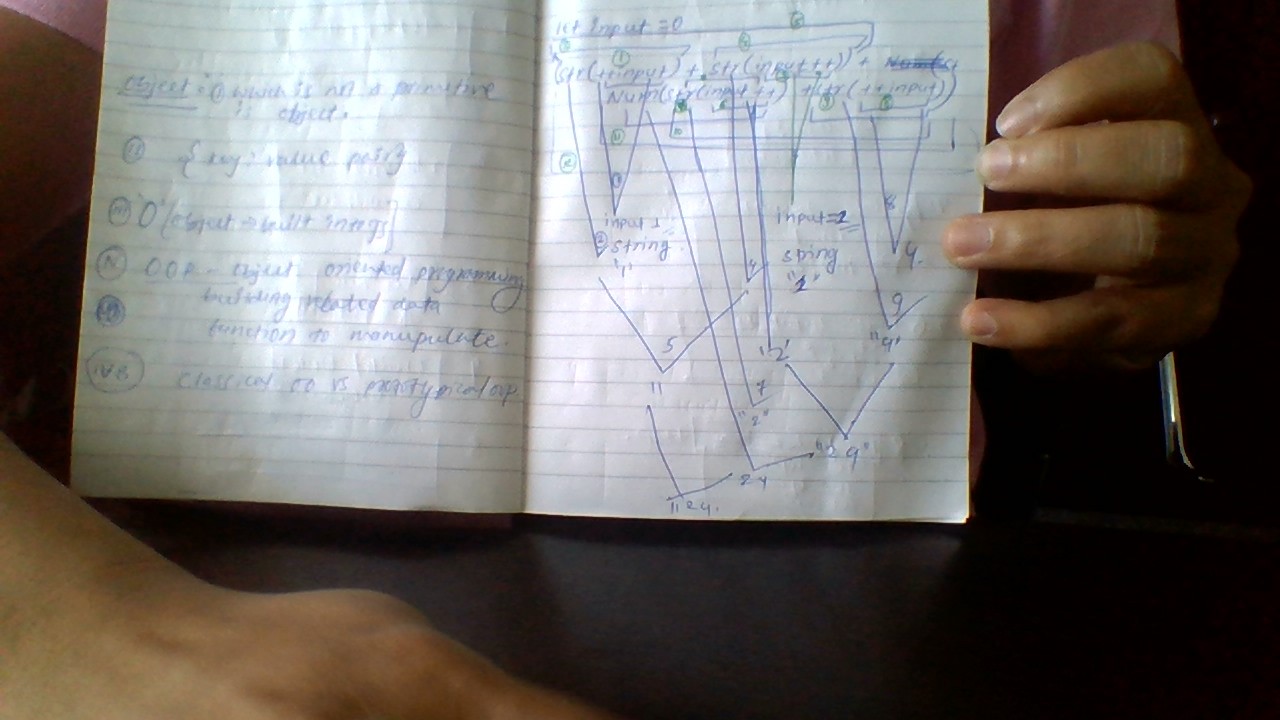 Object : ① which is not a primitive
is object.
② { key : value pair }
③ 'O' [Object → built in
④ OOP - object oriented programming
building related data
function to manupulate.
classical oo vs prototypical oop
let input = 0
(str(++input) + str(input++)) +
Num(str(input++) + str(++input))
input 1
string
"1"
input = 2
string
"1"
8
4
9
"4"
5
11
"2"
7
"2"
"24"
24
1124